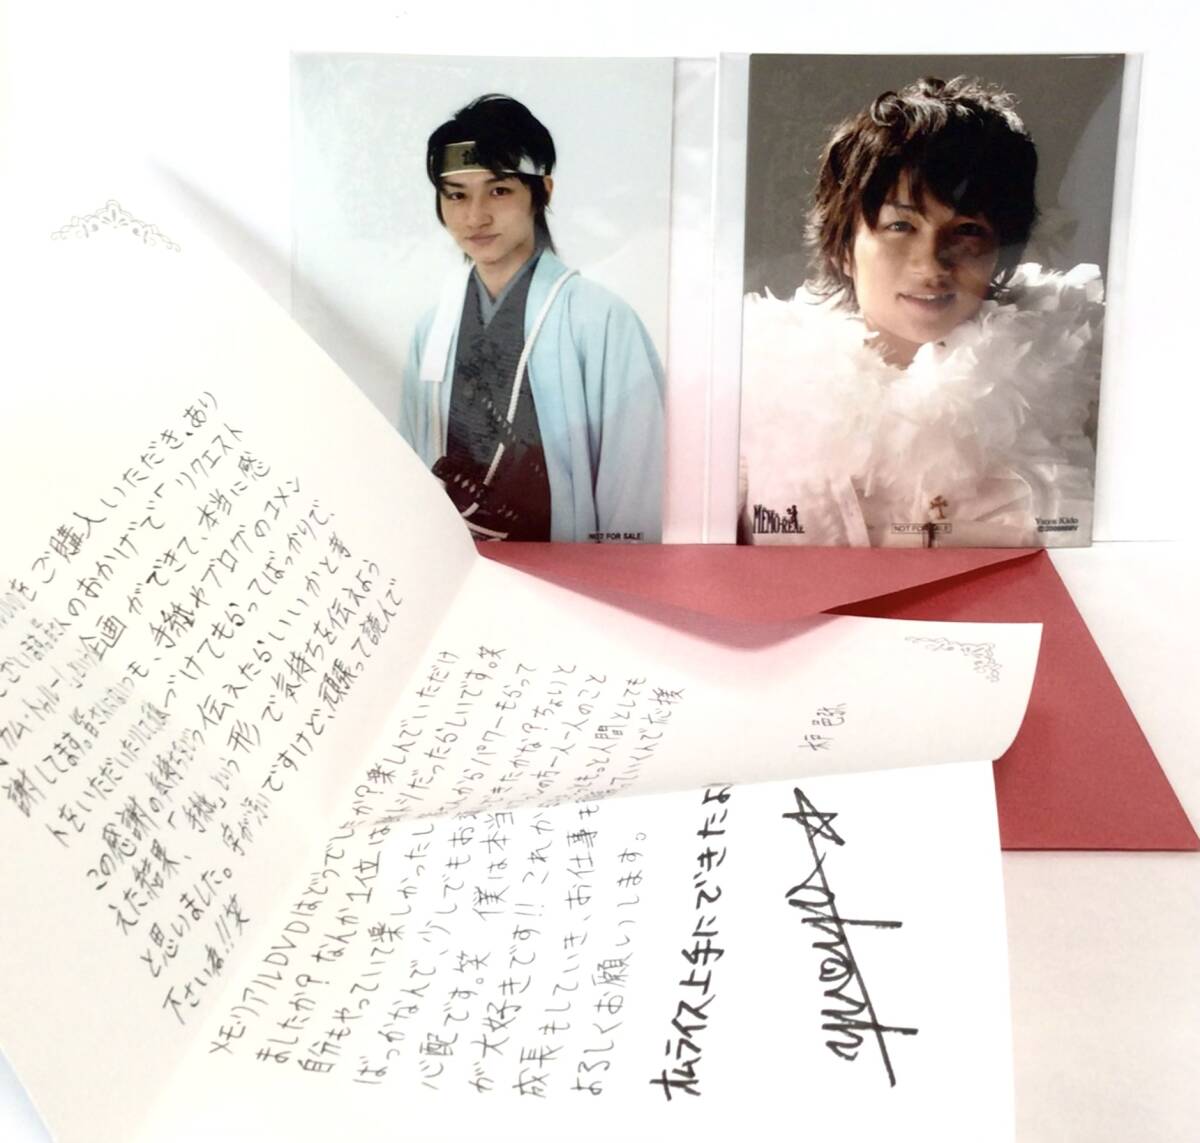 誠
NOT FOR SALE
MEMO-REAL
NOT FOR SALE
Yuya Kido
をご購入いただき、あり
のおかげで「リクエスト
カム・トゥルー」という企画ができて、本当に感
謝してます。皆さんにはいつも、手紙やブログのコメン
トをいただいたりして
づけてもらってばっかりで、
この感謝の気持ちをどう伝えたらいいかと考
えた結果、「手紙」という形で気持ちを伝えよう
と思いました。字が
ですけど、頑張って読んで
下さいね!!笑
メモリアルDVDはどうでしたか?楽しんでいただけ
ましたか?なんか1位は
だったらしいです。笑
自分もやっていて楽しかったし
からパワーもらって
ばっかなんで、少しでもお
できたかな?ちょいと
心配です。笑 僕は本当
の方一人一人のこと
が大好きです!!これか
もっと人間としても
成長をしていき、お仕事も
っていくんで応援
よろしくお願いします。
オムライス上手にできたよ